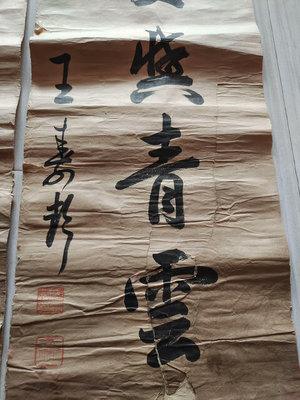 與青雲
王壽彭